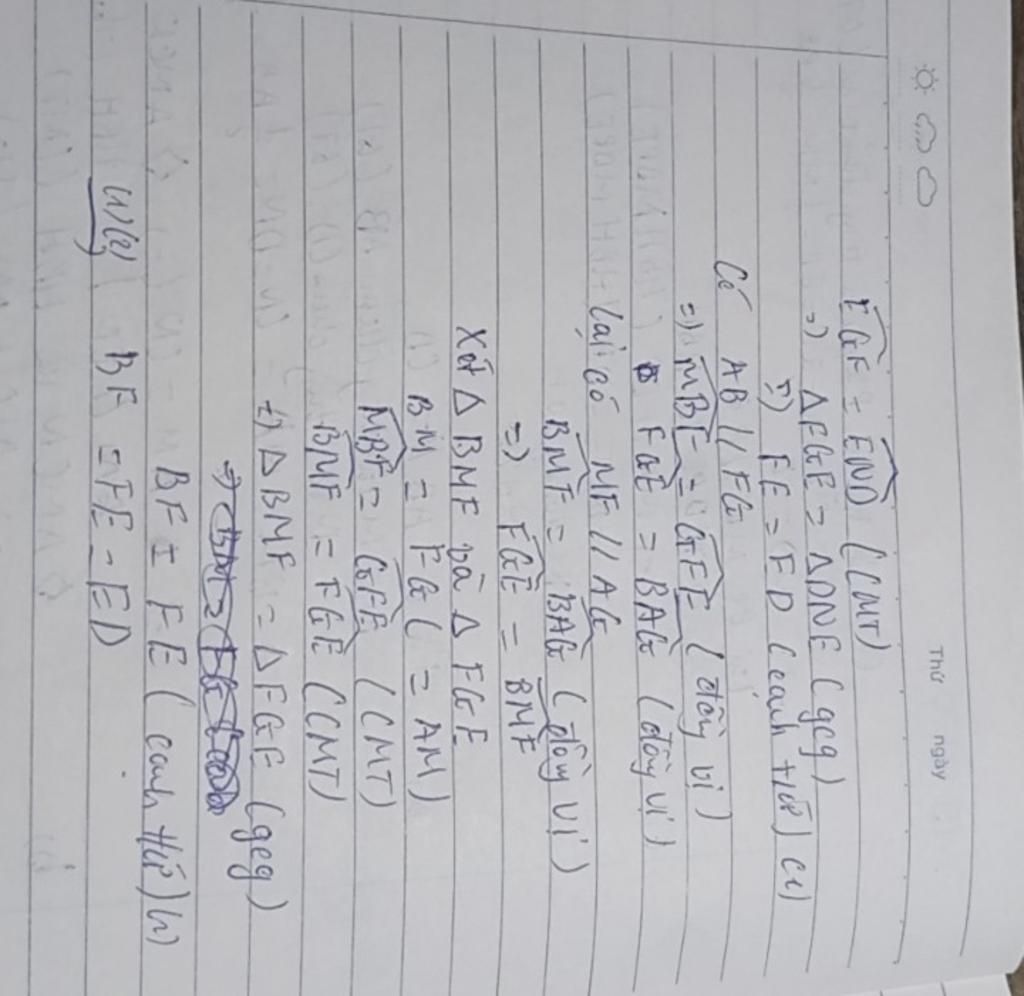 Thứ ngày
EGF = END (CMT)
=) ΔFGE = ΔDNE (gcg)
=) FE = ED (cạnh tứ) (1)
Có AB // FG
=) MBF = GFE (đồng vị)
FGE = BAG (đồng vị)
Lại có MF // AG
BMF = BAG (đồng vị)
=) FGE = BMF
Xét Δ BMF và Δ FGE
BM = FG (= AM)
MBF = GFE (CMT)
BMF = FGE (CMT)
=) Δ BMF = Δ FGE (gcg)
BF = FE (cạnh tứ) (2)
(1)(2) BF = FE = ED